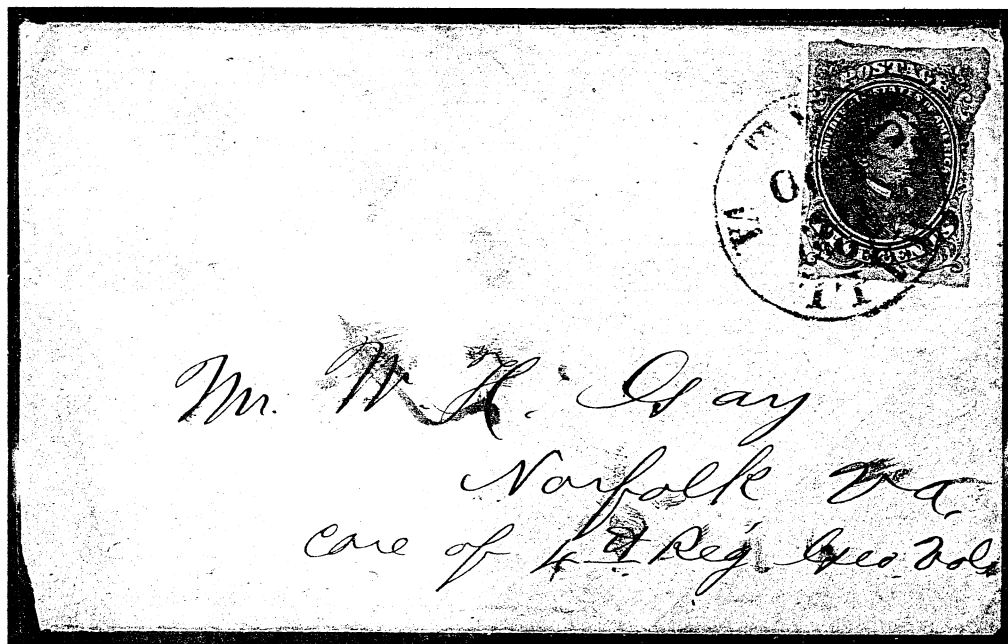 POSTAGE
CONFEDERATE STATES OF AMERICA
FIVE CENTS
VA
Mr. W. H. Gay
Norfolk Va.
care of 4th Reg Geo. Vols